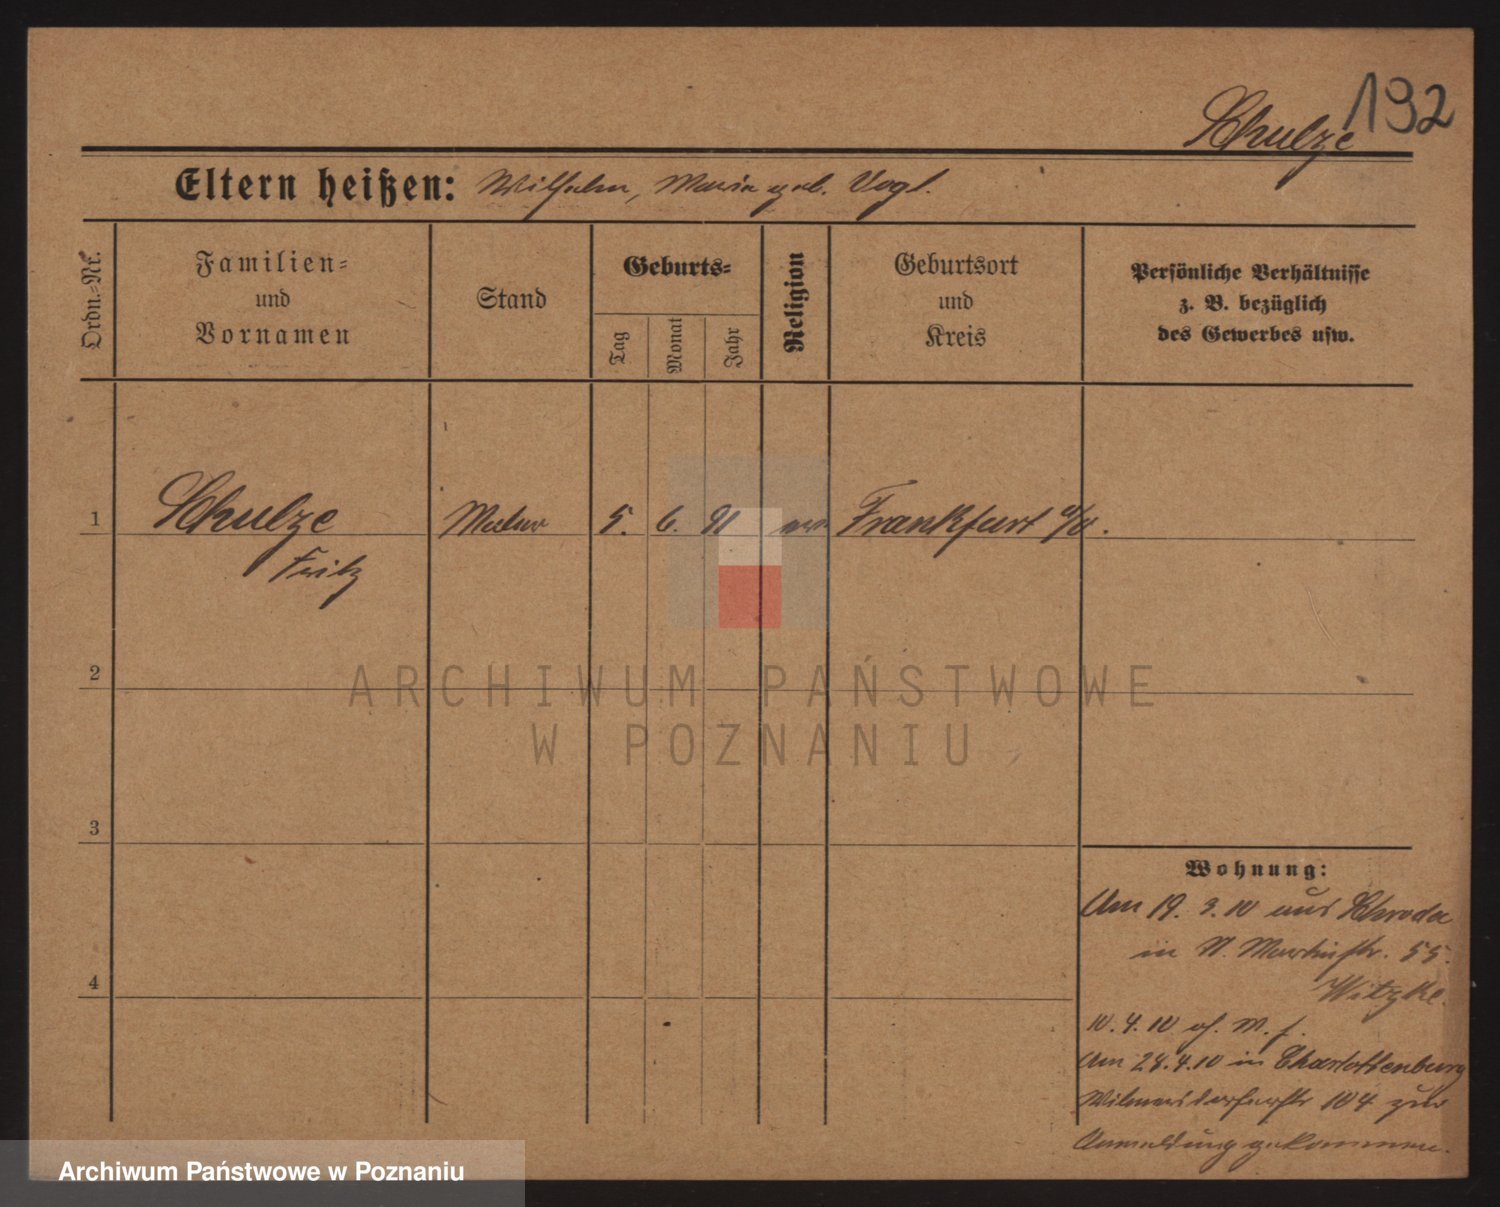 192
Schulze
Eltern heißen: Wilhelm, Maria geb. Vogt.
Ordn.-Nr.
Familien-
und
Vornamen
Stand
Geburts-
Tag
Monat
Jahr
Religion
Geburtsort
und
Kreis
Persönliche Verhältnisse
z. B. bezüglich
des Gewerbes usw.
1 Schulze Maler 5. 6. 91 ev. Frankfurt a/O.
Fritz
2
ARCHIWUM PAŃSTWOWE
W POZNANIU
3
Wohnung:
Am 19. 3. 10 aus Schroda
in St. Martinstr. 55.
Witzke.
4
10. 4. 10
Am 28. 4. 10 in Charlottenburg
Wilmersdorferstr 104 zur
Anmeldung gekommen.
Archiwum Państwowe w Poznaniu